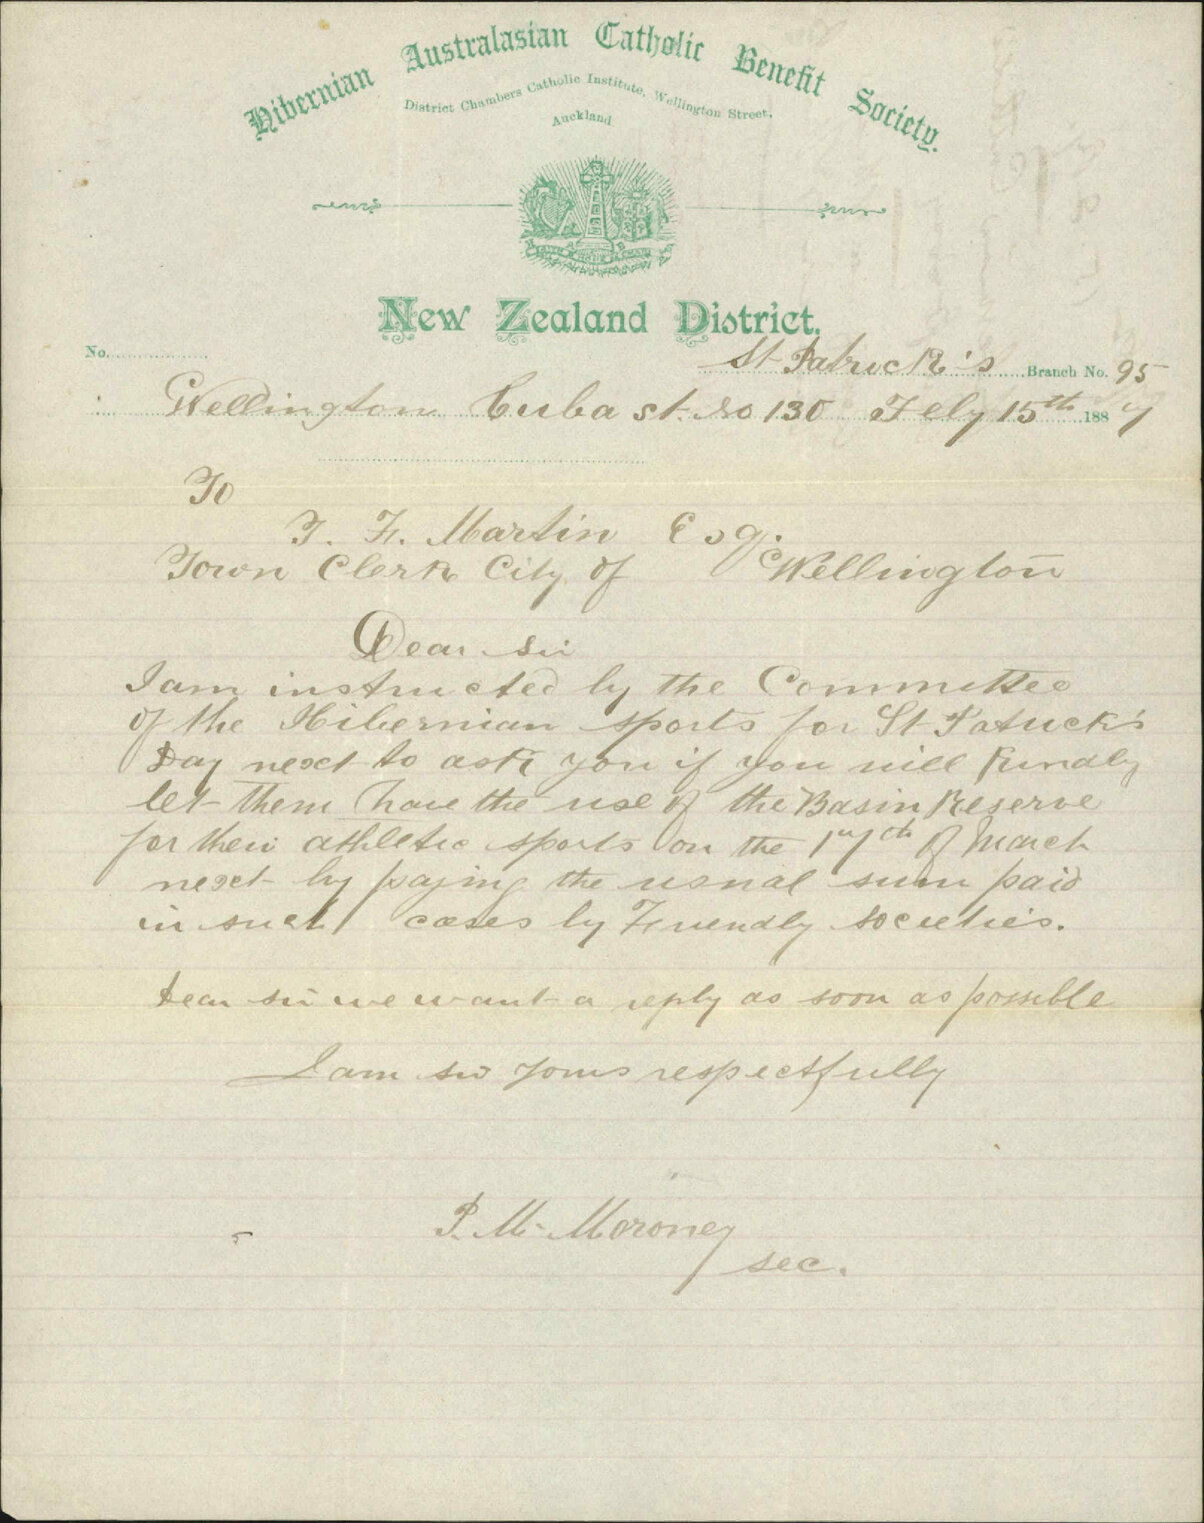 Hibernian Australasian Catholic Benefit Society.
District Chambers Catholic Institute, Wellington Street,
Auckland
New Zealand District.
No.
St Patrick's Branch No. 95
Wellington Cuba st. No 130 Feby 15th 1887
To
T. F. Martin Esq.
Town Clerk City of Wellington
Dear sir
I am instructed by the Committee
of the Hibernian sports for St Patrick's
Day next to ask you if you will kindly
let them have the use of the Basin Reserve
for their athletic sports on the 17th of March
next by paying the usual sum paid
in such cases by Friendly societies.
Dear sir we want a reply as soon as possible
I am sir yours respectfully
P. M. Moroney
sec.